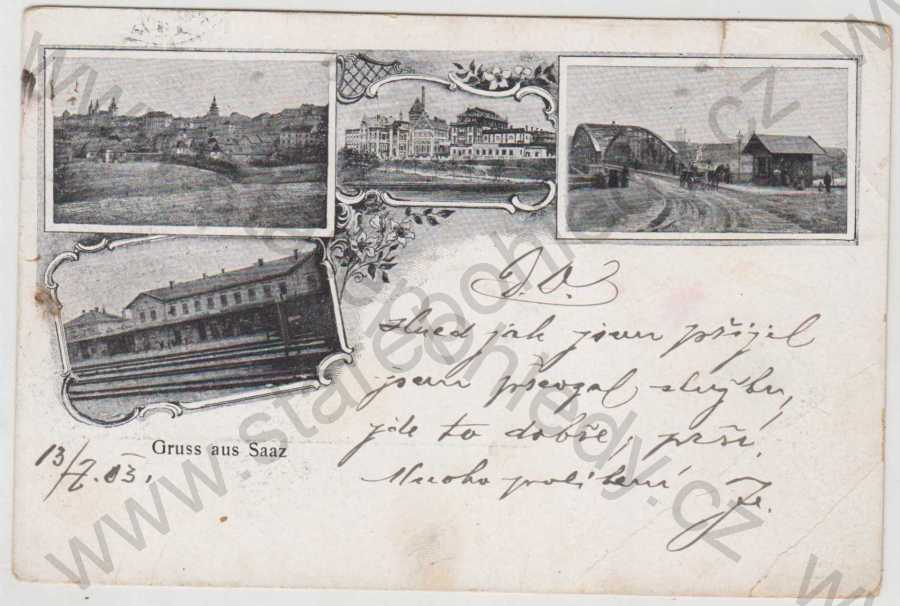 D. O.
hned jak jsem přijel
jsem převzal službu,
jde to dobře, prší,
Mnoho políbení
Gruss aus Saaz
13/7.03.
www.starepohledy.cz